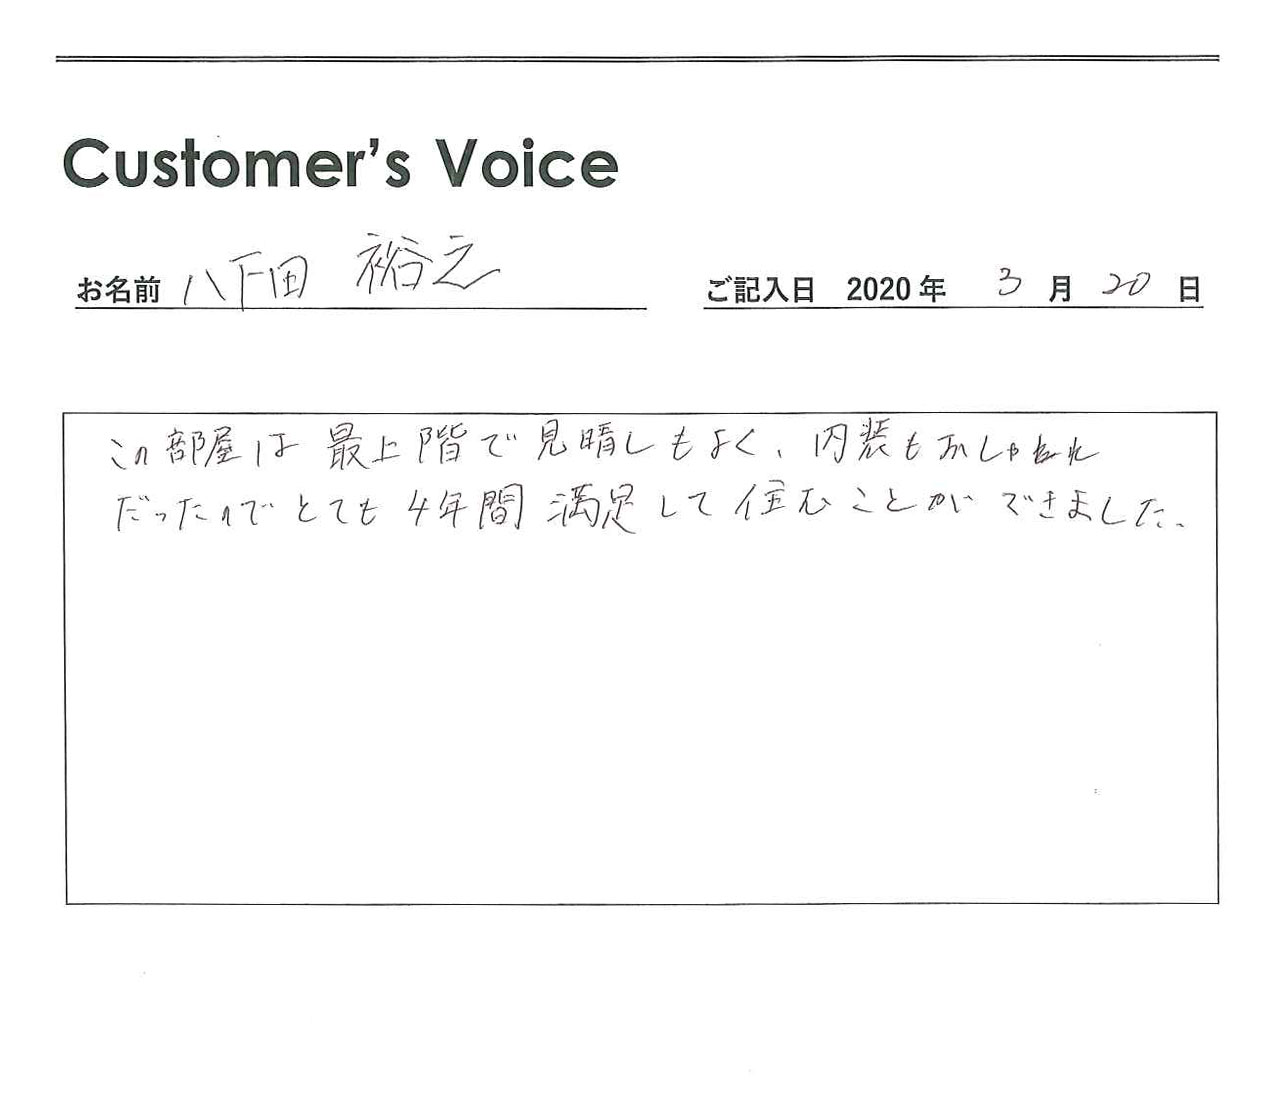 Customer's Voice
お名前 八下田 裕之
ご記入日 2020年 3月 20日
この部屋は最上階で見晴しもよく、内装もおしゃれ
だったのでとても4年間満足して住むことができました。